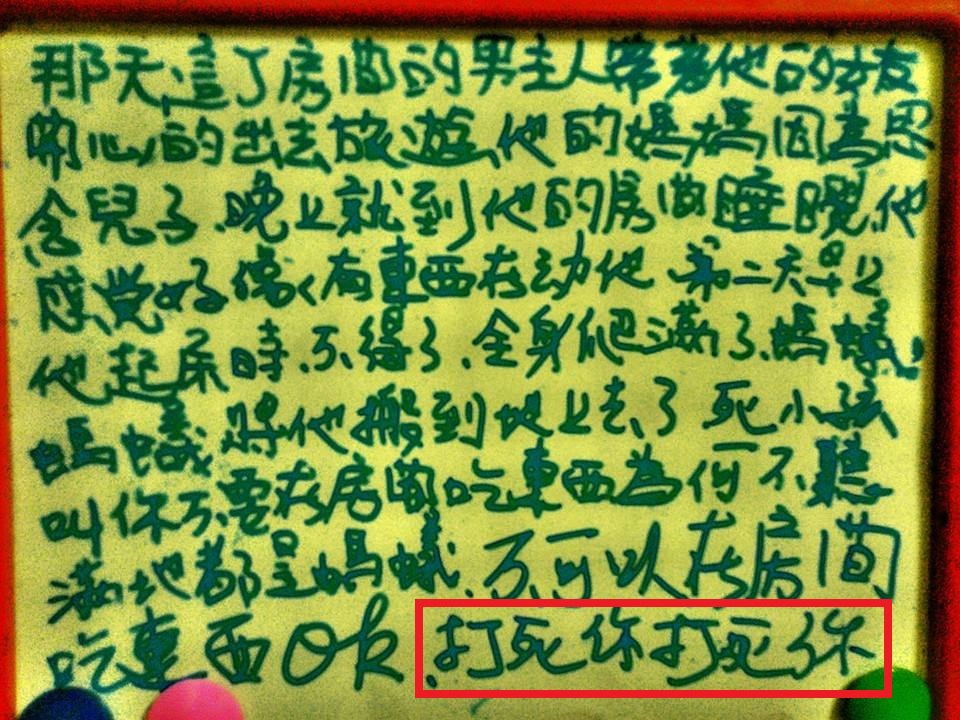 那天這了房間的男主人帶著他的女友
開心的出去旅遊,他的媽媽因為思
念兒子.晚上就到他的房間睡覺.他
感覺好像く有東西在動他 第二天早上
他起床時.不得了.全身爬滿了.螞蟻。
螞蟻 將他搬到地上去了 死小孩
叫你不要在房間吃東西為何不聽
滿地都是螞蟻.不可以在房間
吃東西OK.打死你打死你